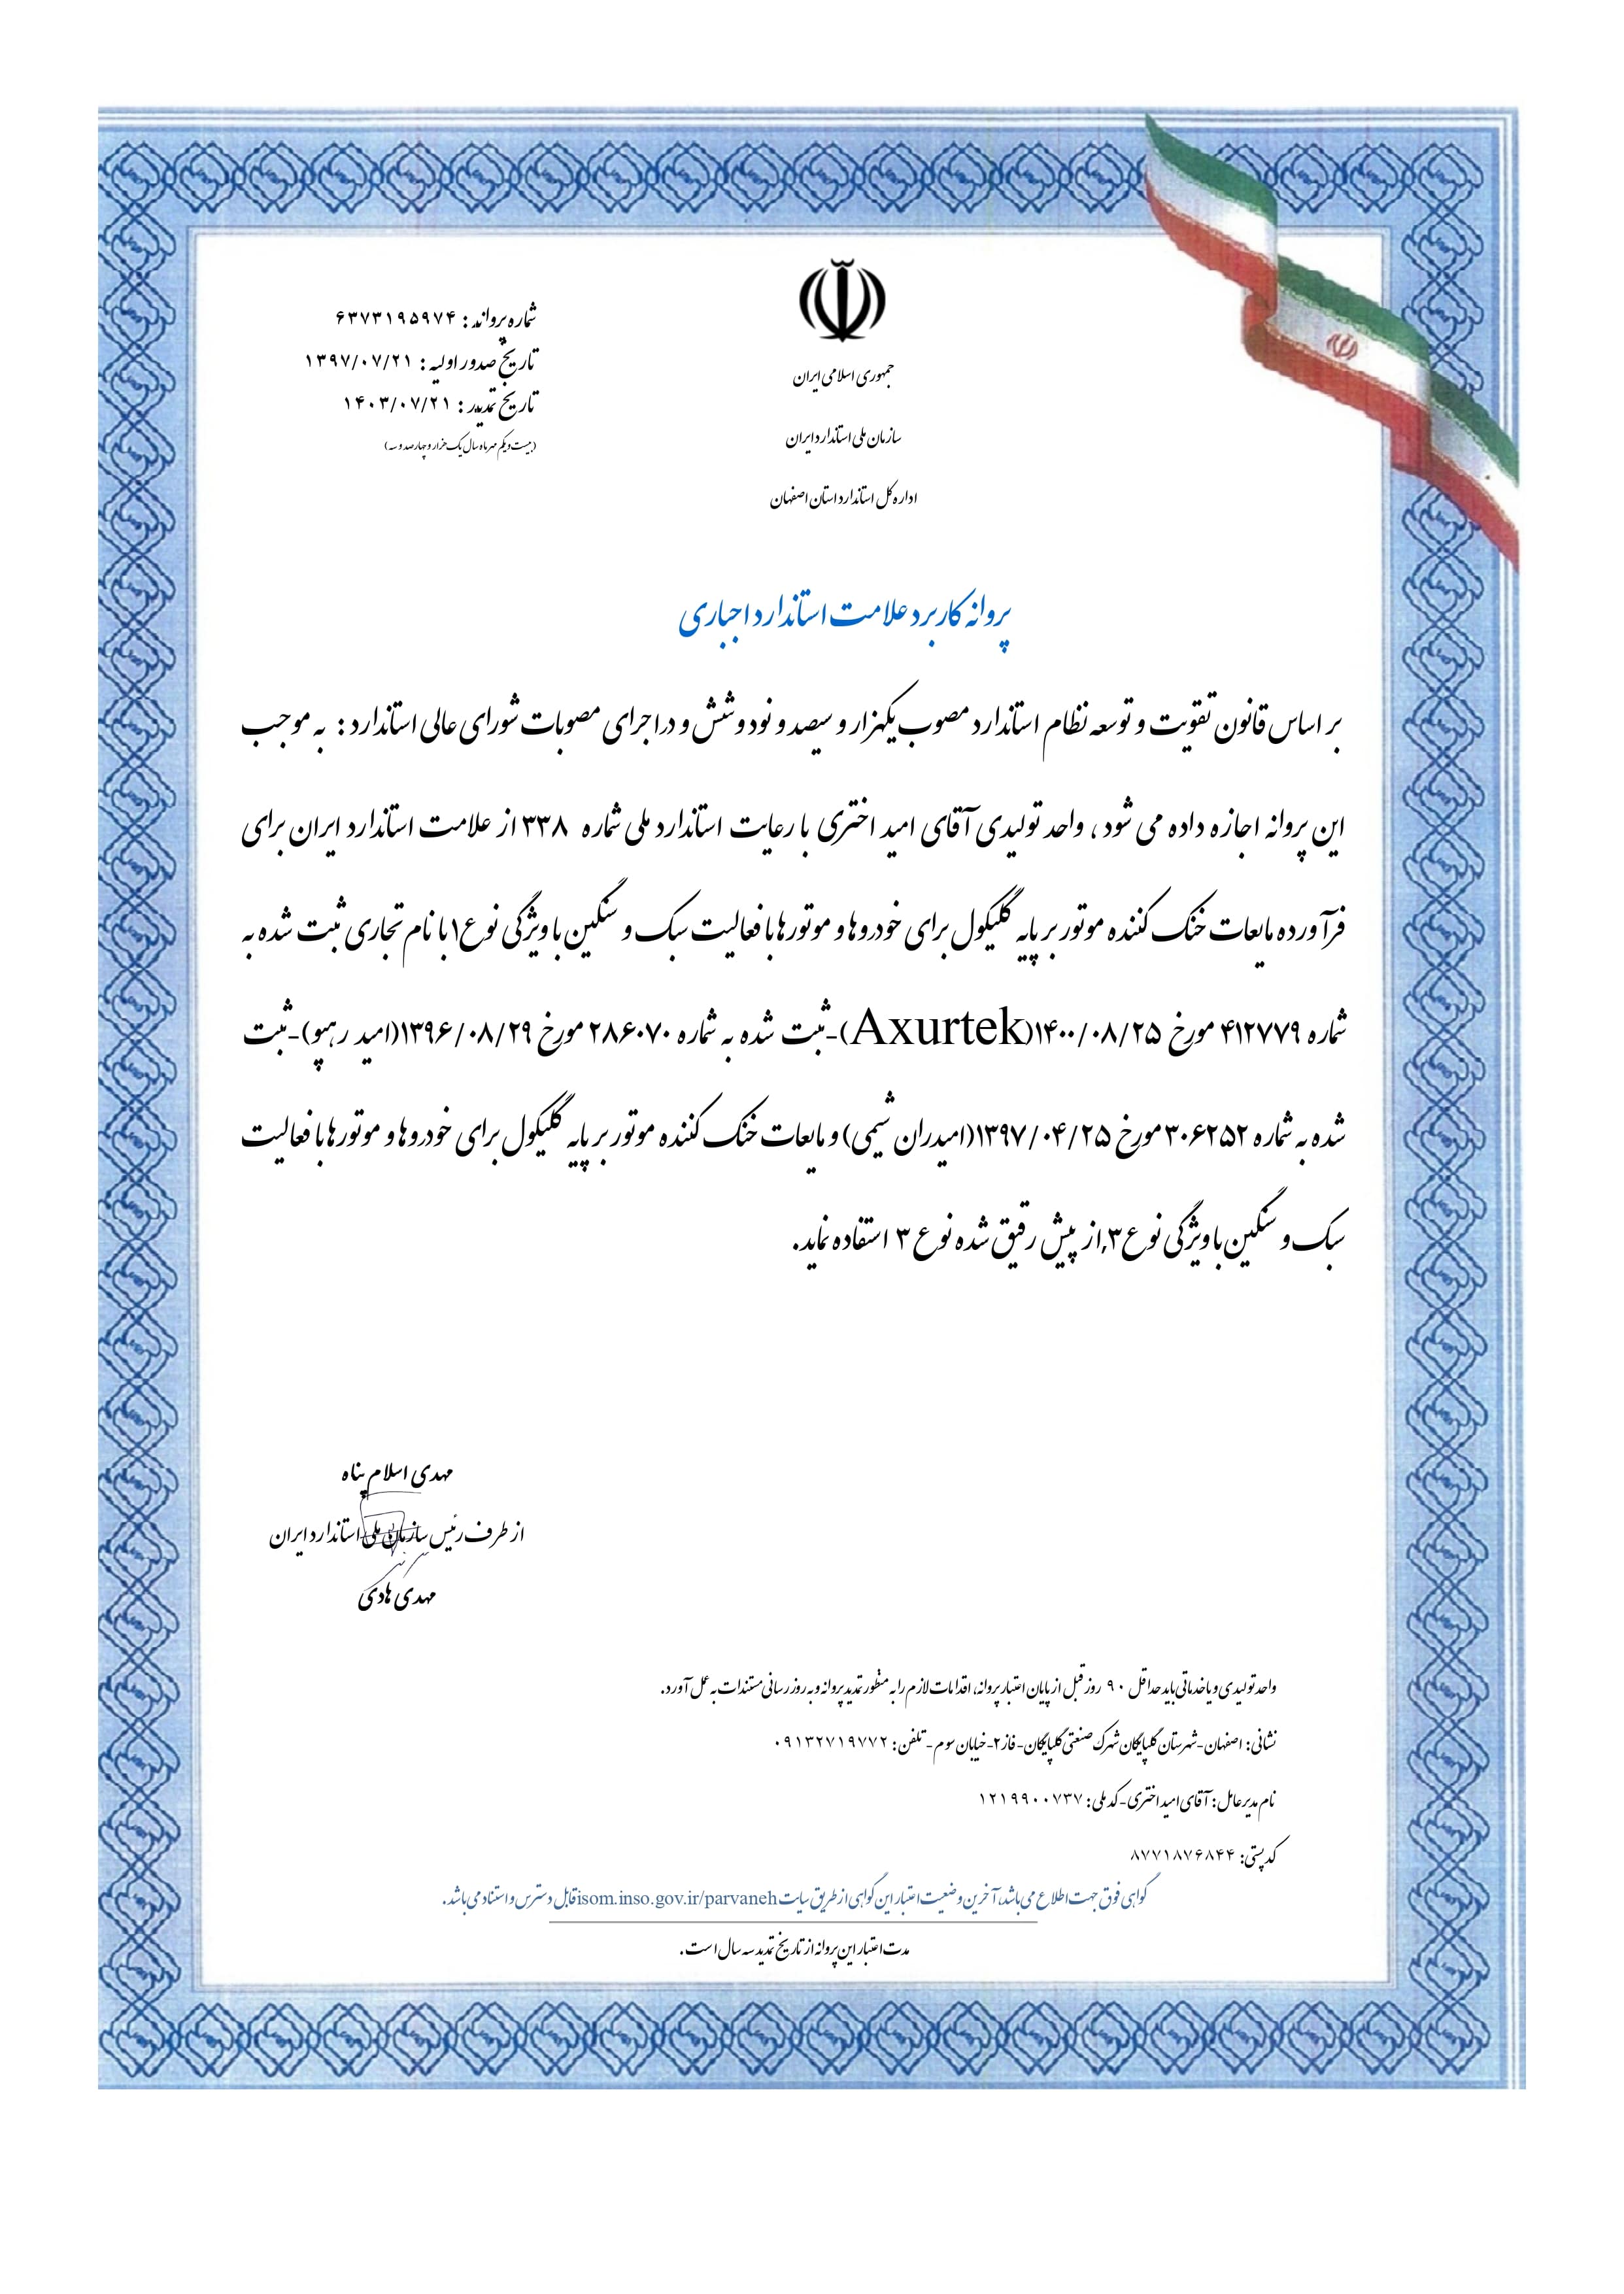 جمهوری اسلامی ایران
سازمان ملی استاندارد ایران
اداره کل استاندارد استان اصفهان
شماره پروانه : ۶۳۷۳۱۹۵۹۷۴
تاریخ صدور اولیه : ۱۳۹۷/۰۷/۲۱
تاریخ تمدید : ۱۴۰۳/۰۷/۲۱
(بیست و یکم مهر ماه سال یک هزار و چهارصد و سه)
پروانه کاربرد علامت استاندارد اجباری
بر اساس قانون تقویت و توسعه نظام استاندارد مصوب یکهزار و سیصد و نود و شش و در اجرای مصوبات شورای عالی استاندارد : به موجب
این پروانه اجازه داده می شود ، واحد تولیدی آقای امید اختری با رعایت استاندارد ملی شماره ۳۳۸ از علامت استاندارد ایران برای
فرآورده مایعات خنک کننده موتور بر پایه گلیکول برای خودروها و موتورها با فعالیت سبک و سنگین با ویژگی نوع ۱ با نام تجاری ثبت شده به
شماره ۴۱۲۷۷۹ مورخ ۱۴۰۰/۰۸/۲۵(Axurtek)-ثبت شده به شماره ۲۸۶۰۷۰ مورخ ۱۳۹۶/۰۸/۲۹(امید رهپو)-ثبت
شده به شماره ۳۰۶۲۵۲ مورخ ۱۳۹۷/۰۴/۲۵(امیدران شیمی) و مایعات خنک کننده موتور بر پایه گلیکول برای خودروها و موتورها با فعالیت
سبک و سنگین با ویژگی نوع ۳,از پیش رقیق شده نوع ۳ استفاده نماید.
مهدی اسلام پناه
از طرف رئیس سازمان ملی استاندارد ایران
مهدی هادی
واحد تولیدی و یا خدماتی باید حداقل ۹۰ روز قبل از پایان اعتبار پروانه، اقدامات لازم را به منظور تمدید پروانه و به روز رسانی مستندات به عمل آورد.
نشانی: اصفهان-شهرستان گلپایگان شهرک صنعتی گلپایگان-فاز ۲-خیابان سوم - تلفن: ۰۹۱۳۲۷۱۹۷۷۲
نام مدیرعامل: آقای امید اختری-کد ملی: ۱۲۱۹۹۰۰۷۳۷
کد پستی: ۸۷۷۱۸۷۶۸۴۴
گواهی فوق جهت اطلاع می باشد، آخرین وضعیت اعتبار این گواهی از طریق سایت isom.inso.gov.ir/parvaneh قابل دسترس و استناد می باشد.
مدت اعتبار این پروانه از تاریخ تمدید سه سال است.